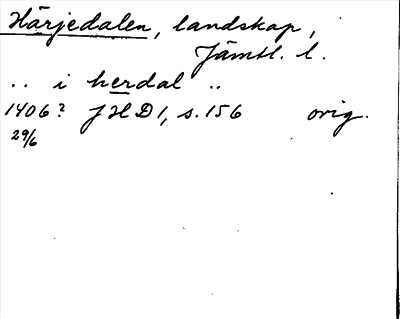 Härjedalen, landskap,
Jämtl. l.
.. i herdal ..
1406? JHD1, s.156 orig.
29/6